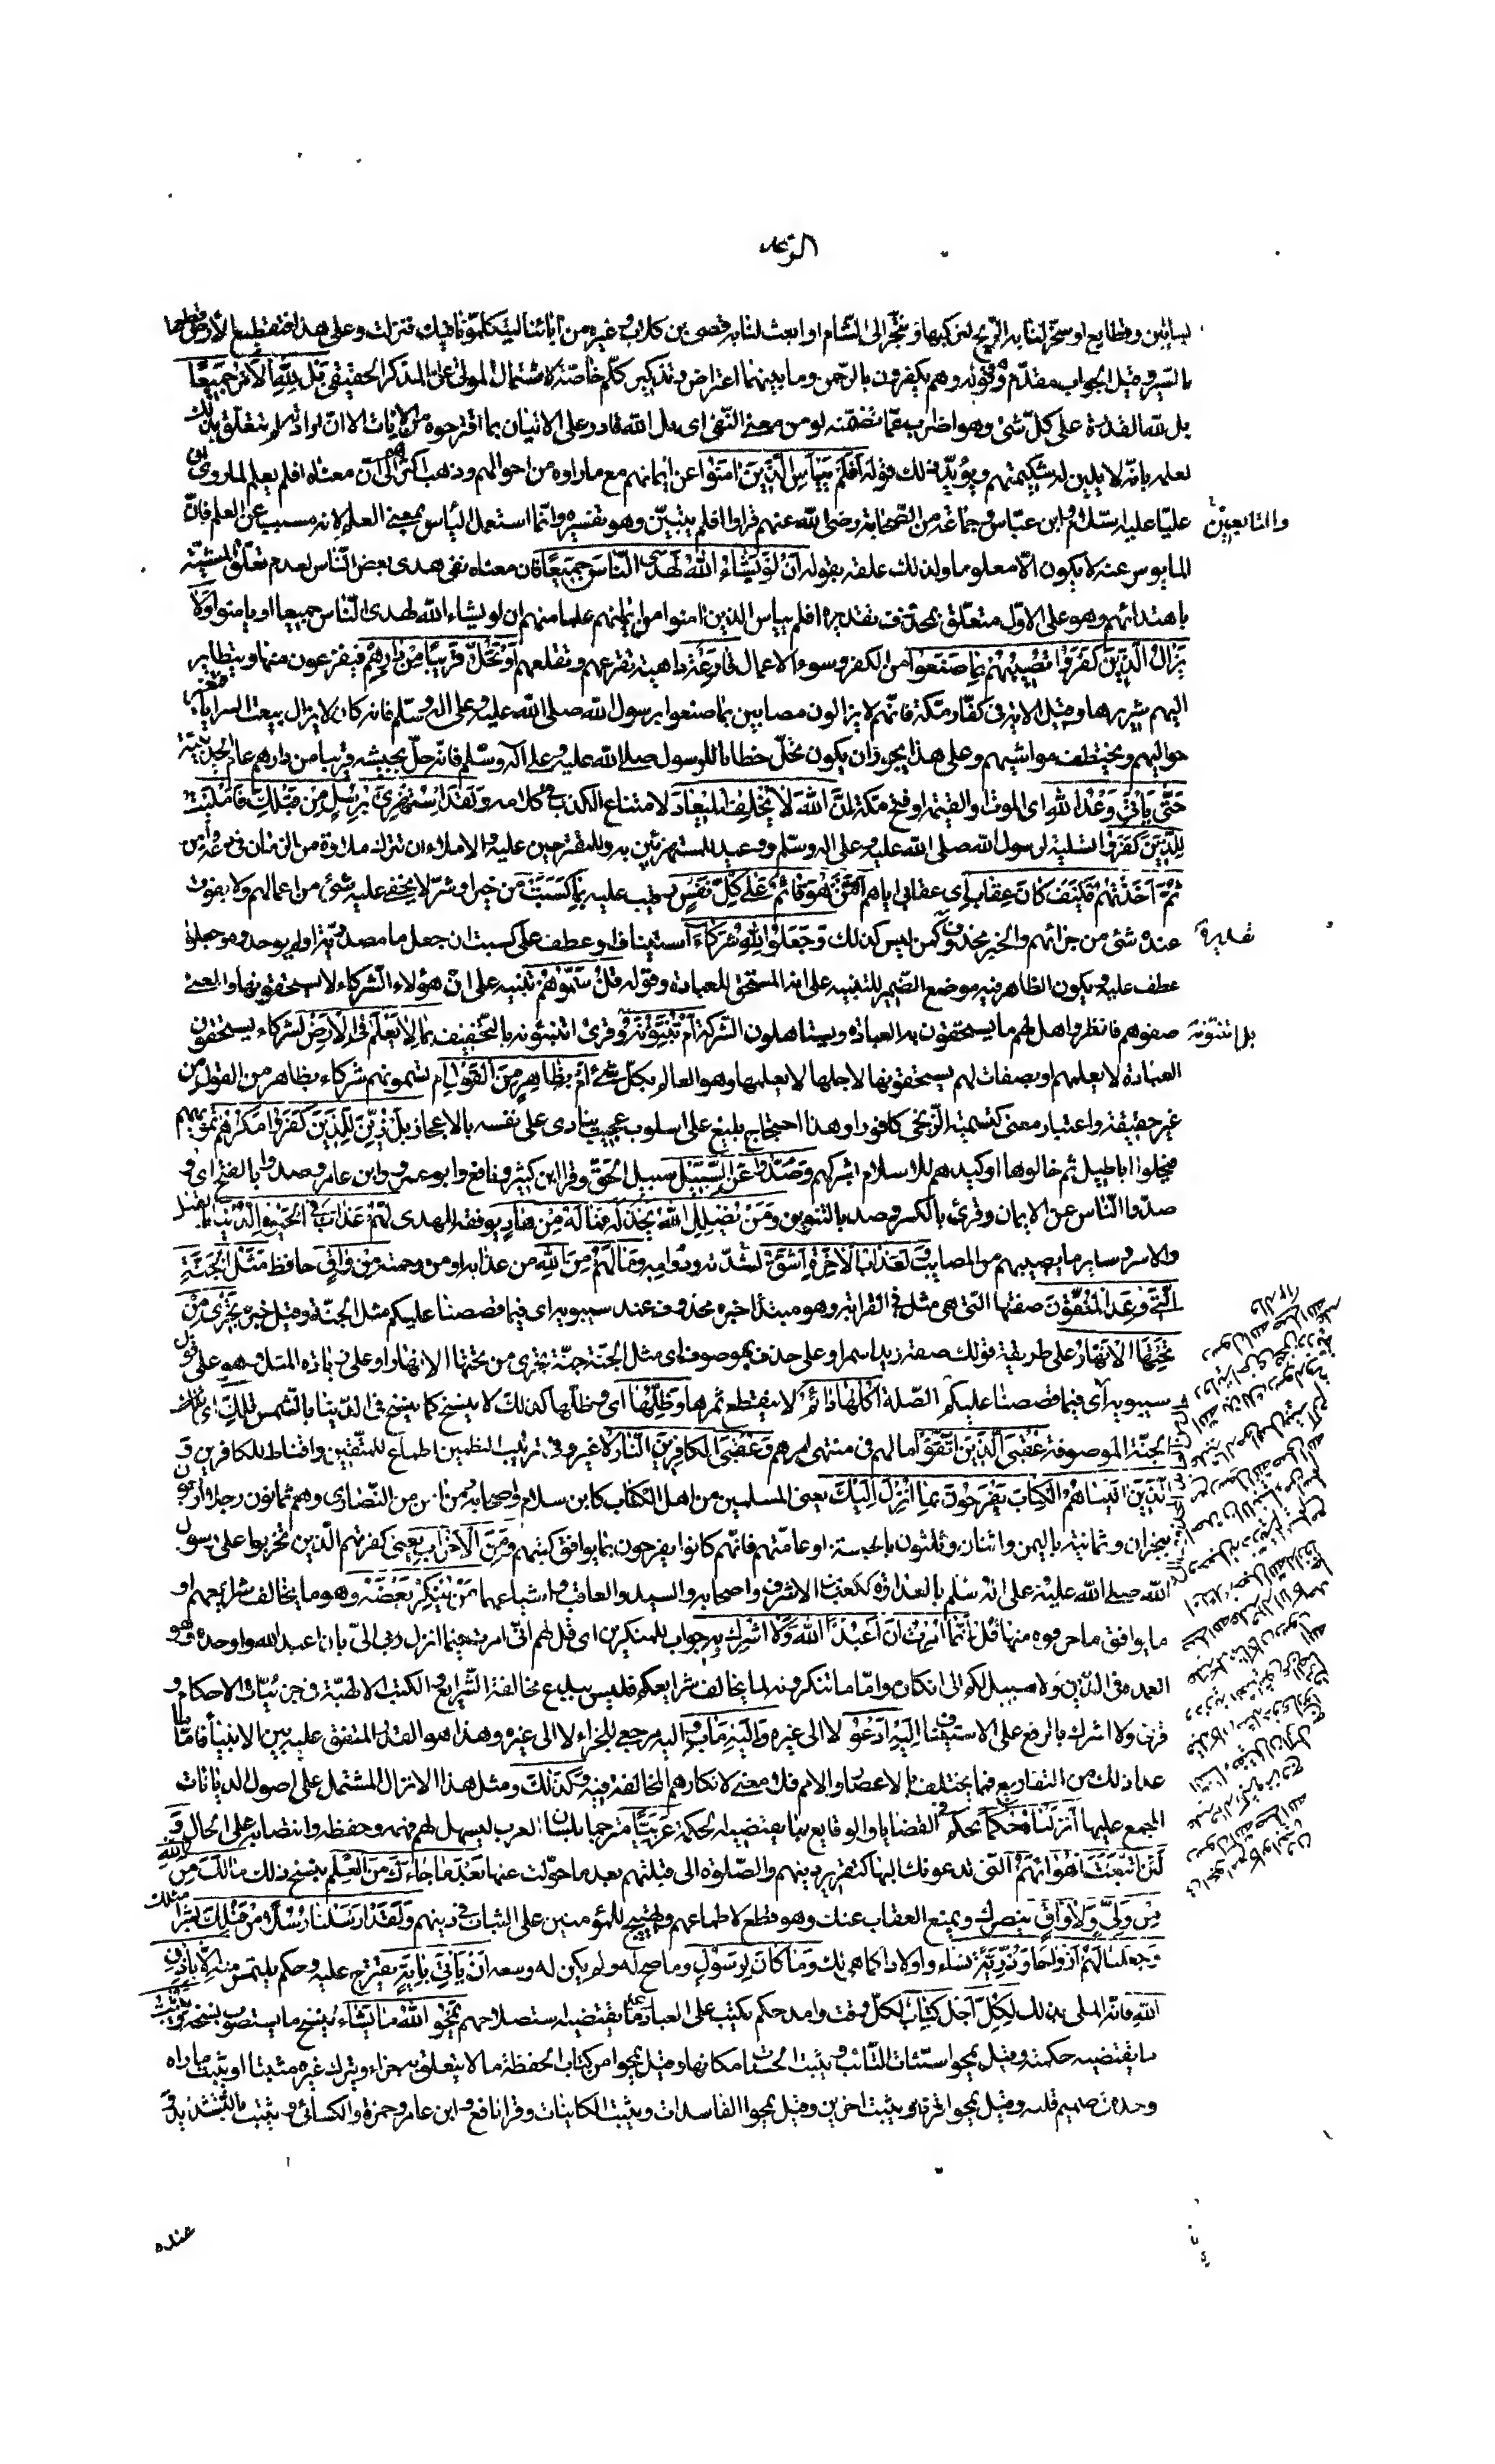 الرعد
بساتين وقطايع او سخر لنا به الريح لنركبها ونتجر الى الشام او ابعث لنا به قصى بن كلاب وغيره من آبائنا ليكلمونا فيك فنزلت وعلى هذا فتقطيع الارض قطعها
بالسير وقيل الجواب مقدم وهو قوله وهم يكفرون بالرحمن وما بينهما اعتراض وتذكير كلم خاصة لاشتمال الموتى على المذكر الحقيقى بل لله الامر جميعا
بل لله القدرة على كل شئ وهو اضراب عما تضمنه لو من معنى النفى اى بل الله قادر على الاتيان بما اقترحوه من الايات الا ان ارادته لم تتعلق بذلك
لعلمه بانه لا يلين له شكيمتهم ويؤيد ذلك قوله افلم ييأس الذين آمنوا عن ايمانهم مع ما راوه من احوالهم وذهب اكثرهم الى ان معناه افلم يعلم لما روى ان
عليا عليه السلام وابن عباس وجماعة من الصحابة رضى الله عنهم قراوا افلم يتبين وهو تفسيره وانما استعمل اليأس بمعنى العلم لانه مسبب عن العلم فان
والتابعين
المايوس عنه لا يكون الا معلوما ولذلك علقه بقوله ان لو يشاء الله لهدى الناس جميعا فان معناه نفى هدى بعض الناس لعدم تعلق المشية
باهتدائهم وهو على الاول متعلق بمحذوف تقديره افلم ييأس الذين آمنوا من ايمانهم علما منهم ان لو يشاء الله لهدى الناس جميعا او بامنوا ولا
يزال الذين كفروا تصيبهم بما صنعوا من الكفر وسوء الاعمال قارعة داهية تقرعهم وتقلعهم او تحل قريبا من دارهم فيفزعون منها ويتطاير
اليهم شررها وقيل الاية فى كفار مكة فانهم لا يزالون مصابين بما صنعوا برسول الله صلى الله عليه وعلى اله وسلم فانه كان لا يزال يبعث السرايا فتغير
حواليهم ويختطف مواشيهم وعلى هذا يجوز ان يكون تحل خطابا للرسول صلى الله عليه وعلى آله وسلم فانه حل بجيشه قريبا من دارهم عام الحديبية
حتى ياتى وعد الله اى الموت او القيمة او فتح مكة ان الله لا يخلف الميعاد لامتناع الكذب فى كلامه ولقد استهزئ برسل من قبلك فامليت
للذين كفروا تسلية لرسول الله صلى الله عليه وعلى اله وسلم ووعيد للمستهزئين به وللمقترحين عليه والاملاء ان تترك ملاوة من الزمان فى دعة وامن
ثم اخذتهم فكيف كان عقاب اى عقابى اياهم افمن هو قائم على كل نفس رقيب عليه بما كسبت من خير او شر لا يخفى عليه شئ من اعمالهم ولا يفوت
عنده شئ من جزائهم والخبر محذوف تقديره كمن ليس كذلك وجعلوا لله شركاء استيناف او عطف على كسبت ان جعل ما مصدرية او لم يوحدوه وجعلوا
عطف عليه ويكون الظاهر فيه موضع الضمير للتنبيه على انه المستحق للعبادة وقوله قل سموهم تنبيه على ان هؤلاء الشركاء لا يستحقونها والمعنى
صفوهم فانظروا هل لهم ما يستحقون به العبادة ويستاهلون الشركة ام تنبئونه بل اتنبئونه وقرئ اتنبئونه بالتخفيف بما لا يعلم فى الارض لشركاء يستحقون
العبادة لا يعلمهم او بصفات لهم يستحقونها لاجلها لا يعلمها وهو العالم بكل شئ ام بظاهر من القول ام تسمونهم شركاء بظاهر من القول من
غير حقيقة واعتبار معنى كتسمية الزنجى كافورا وهذا احتجاج بليغ على اسلوب عجيب ينادى على نفسه بالاعجاز بل زين للذين كفروا مكرهم تمويههم
فتخيلوا اباطيل ثم خالوها او كيدهم للاسلام بشركهم وصدوا عن السبيل سبيل الحق وقرا ابن كثير ونافع وابو عمرو وابن عامر وصدوا بالفتح اى و
صدوا الناس عن الايمان وقرئ بالكسر وصد بالتنوين ومن يضلل الله بخذله فما له من هاد يوفقه للهدى لهم عذاب فى الحيوة الدنيا بالقتل
والاسر وساير ما يصيبهم من المصايب ولعذاب الاخرة اشق لشدته ودوامه وما لهم من الله من عذابه او من رحمته من واق حافظ مثل الجنة
التى وعد المتقون صفتها التى هى مثل فى الغرابة وهو مبتدا خبره محذوف عند سيبويه اى فيما قصصنا عليكم مثل الجنة وقيل خبره تجرى من
تحتها الانهار على طريقة قولك صفة زيد اسمر او على حذف موصوف اى مثل الجنة جنة تجرى من تحتها الانهار او على زيادة المثل وهو على قول
سيبويه اى فيما قصصنا عليكم الصلة اكلها دائم لا ينقطع ثمرها وظلها اى وظلها كذلك لا ينسخ كما ينسخ فى الدنيا بالشمس تلك اى تلك
الجنة الموصوفة عقبى الذين اتقوا مالهم فى منتهى امرهم وعقبى الكافرين النار لا غير وفى ترتيب النظمين اطماع للمتقين واقناط للكافرين و
الذين اتيناهم الكتاب يفرحون بما انزل اليك يعنى المسلمين من اهل الكتاب كابن سلام واصحابه ومن امن من النصارى وهم ثمانون رجلا اربعون
بنجران وثمانية باليمن واثنان وثلثون بالحبشة او عامتهم فانهم كانوا يفرحون بما يوافق كتبهم ومن الاحزاب يعنى كفرتهم الذين تحزبوا على رسول
الله صلى الله عليه وعلى اله وسلم بالعداوة ككعب بن الاشرف واصحابه والسيد والعاقب واشياعهما من ينكر بعضه وهو ما يخالف شرايعهم او
ما يوافق ما حرفوه منها قل انما امرت ان اعبد الله ولا اشرك به جواب للمنكرين اى قل لهم انى امرت فيما انزل ربى الى بان اعبد الله واوحده وهو
العمدة فى الدين ولا سبيل لكم الى انكاره واما ما تنكرونه لما يخالف شرايعكم فليس ببدع مخالفة الشرايع والكتب الالهية فى جزئيات الاحكام و
قرئ ولا اشرك بالرفع على الاستيناف اليه ادعو لا الى غيره واليه مآب واليه مرجعى للجزاء لا الى غيره وهذا هو القدر المتفق عليه بين الانبياء فاما ما
عدا ذلك من التفاريع فمما يختلف بالاعصار والامم فلا معنى لانكارهم المخالفة فيه وكذلك ومثل هذا الانزال المشتمل على اصول الديانات
المجمع عليها انزلناه حكما يحكم فى القضايا والوقايع بما يقتضيه الحكمة عربيا مترجما بلسان العرب ليسهل لهم فهمه وحفظه وانتصابه على الحال و
لئن اتبعت اهواءهم التى تدعونك اليها كتقرير دينهم والصلوة الى قبلتهم بعد ما حولت عنها بعد ما جاءك من العلم بنسخ ذلك مالك من الله
من ولى ولا واق ينصرك ويمنع العقاب عنك وهو قطع لاطماعهم وتهييج للمؤمنين على الثبات فى دينهم ولقد ارسلنا رسلا من قبلك بشرا مثلك
وجعلنا لهم ازواجا وذرية نساء واولادا كما هى لك وما كان لرسول وما صح له ولم يكن له وسعه ان ياتى باية يقترح عليه وحكم يلتمس منه الا باذن
الله فانه الملى بذلك لكل اجل كتاب لكل وقت وامد حكم يكتب على العباد على ما يقتضيه استصلاحهم يمحو الله ما يشاء ينسخ ما يستصوب نسخه ويثبت
ما يقتضيه حكمته وقيل يمحو سيئات التائب ويثبت الحسنات مكانها وقيل يمحو من كتاب الحفظة ما لا يتعلق به جزاء ويترك غيره مثبتا او يثبت ما راه
وحده من صميم قلبه وقيل يمحو قرنا ويثبت اخرين وقيل يمحو الفاسدات ويثبت الكاينات وقرا نافع وابن عامر وحمزة والكسائى ويثبت بالتشديد و
عنده